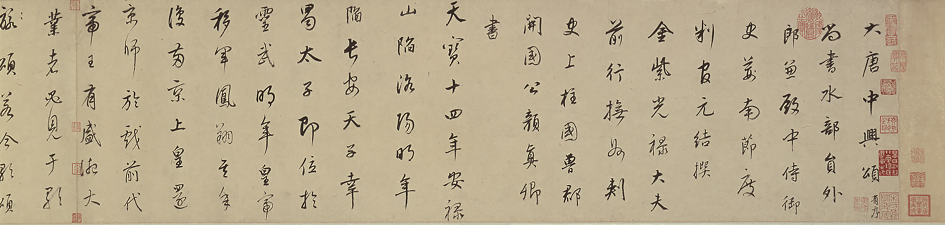 大唐中興頌有序
尚書水部員外
郎兼殿中侍御
史荊南節度
判官元結撰
金紫光祿大夫
前行撫州刺
史上柱國魯郡
開國公顏真卿
書
天寶十四年安祿
山陷洛陽明年
陷長安天子幸
蜀太子即位於
靈武明年皇帝
移軍鳳翔其年
復兩京上皇還
京師於戲前代
帝王有盛德大
業者必見于歌
頌若今歌頌